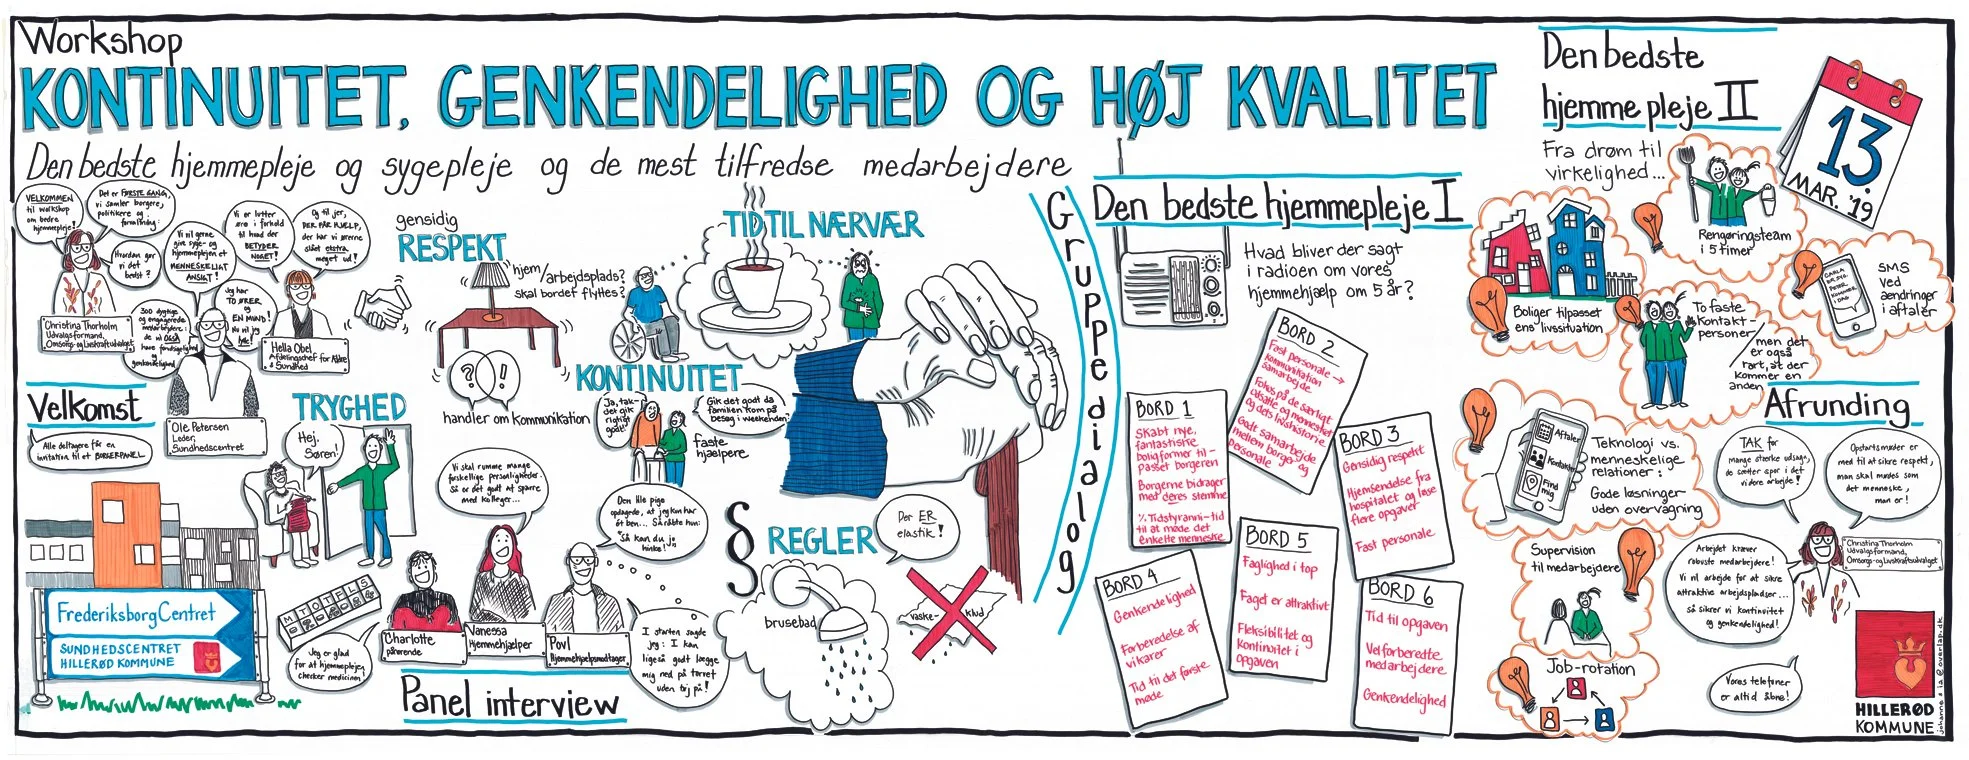 Workshop
KONTINUITET, GENKENDELIGHED OG HØJ KVALITET
Den bedste hjemmepleje og sygepleje og de mest tilfredse medarbejdere
VELKOMMEN
til workshop
om bedre
hjemmepleje!
Det er FØRSTE GANG,
vi samler borgere,
politikere og
forvaltning!
Hvordan gør
vi det
bedst?
Christina Thorholm
Udvalgsformand,
Omsorgs- og Livskraftsudvalget
Vi vil gerne
give syge- og
hjemmeplejen et
MENNESKELIGT
ANSIGT!
300 dygtige
og engagerede
medarbejdere
de vil OGSÅ
have forudsigelighed
og
genkendelighed
Jeg har
TO ØRER
og
EN MUND!
Nu vil jeg
lytte!
Ole Petersen
Leder,
Sundhedscentret
Vi er lutter
øre i forhold
til hvad der
BETYDER
NOGET!
Og til jer,
DER FÅR HJÆLP,
der har vi ørerne
slået ekstra
meget ud!
Hella Obel
Afdelingschef for Ældre
& Sundhed
Velkomst
Alle deltagere får en
invitation til et BORGERPANEL
FrederiksborgCentret
SUNDHEDSCENTRET
HILLERØD KOMMUNE
gensidig
RESPEKT
hjem/arbejdsplads?
skal bordet flyttes?
? !
handler om kommunikation
TRYGHED
Hej,
Søren!
M T O T F L S
Jeg er glad
for at hjemmeplejen
checker medicinen!
TID TIL NÆRVÆR
KONTINUITET
Ja, tak-
det gik
rigtigt
godt!
Gik det godt da
familien kom på
besøg i weekenden?
faste
hjælpere
Vi skal rumme mange
forskellige personligheder.
Så er det godt at sparre
med kolleger...
Den lille pige
opdagede, at jeg kun har
ét ben... Så råbte hun:
"Så kan du jo
hinke!"
Charlotte
pårørende
Vanessa
Hjemmehjælper
Povl
Hjemmehjælpsmodtager
I starten sagde
jeg: I kan
ligeså godt lægge
mig ned på torvet
uden tøj på!
Panel interview
§ REGLER
Der ER
elastik!
brusebad
vaske-klud
Gruppedialog
Den bedste hjemmepleje I
Hvad bliver der sagt
i radioen om vores
hjemmehjælp om 5 år?
BORD 1
Skabt nye,
fantastiske
boligformer til-
passet borgeren
Borgerne bidrager
med deres stemme
% Tidstyranni-tid
til at møde det
enkelte menneske
BORD 2
Fast personale →
kommunikation
samarbejde
Fokus på de særligt
udsatte og mennesket
og dets livshistorie
Godt samarbejde
mellem borger og
personale
BORD 3
Gensidig respekt
Hjemsendelse fra
hospitalet og løse
flere opgaver
Fast personale
BORD 4
Genkendelighed
Forberedelse af
vikarer
Tid til det første
møde
BORD 5
Faglighed i top
Faget er attraktivt
Fleksibilitet og
kontinuitet i
opgaven
BORD 6
Tid til opgaven
Velforberedte
medarbejdere
Genkendelighed
Den bedste
hjemmepleje II
13.
MAR. '19
Fra drøm til
virkelighed...
Rengøringsteam
i 5 timer
Boliger tilpasset
ens livssituation
CARLA
ER SYG.
PETER
KOMMER
I DAG
SMS
ved
ændringer
i aftaler
To faste
kontakt-
personer
/men det
er også
rart, at der
kommer en
anden
Aftaler
Kontakt
Find
mig
Teknologi vs.
menneskelige
relationer:
Gode løsninger
uden overvågning
Supervision
til medarbejdere
Job-rotation
Afrunding
TAK for
mange stærke udsagn,
de sætter spor i det
videre arbejde!
Opstartsmøder er
med til at sikre respekt,
man skal mødes som
det menneske,
man er!
Christina Thorholm
Udvalgsformand,
Omsorgs- og Livskraftsudvalget
Arbejdet kræver
robuste medarbejdere!
Vi vil arbejde for at sikre
attraktive arbejdspladser...
så sikrer vi kontinuitet
og genkendelighed!
Vores telefoner
er altid åbne!
HILLERØD
KOMMUNE
johanne & ia @overlap.dk